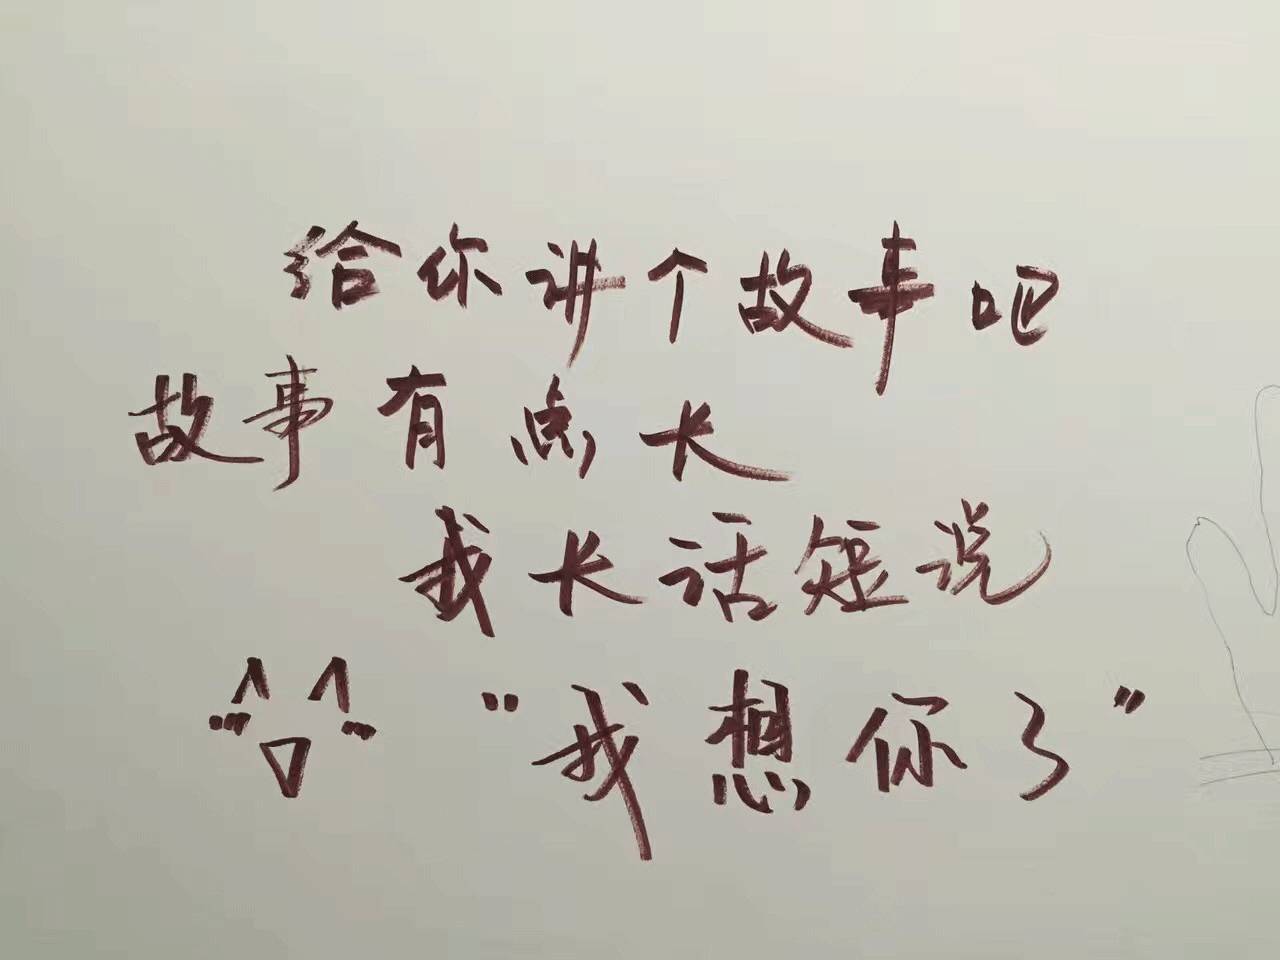 给你讲个故事吧
故事有点长
我长话短说
"我想你了"